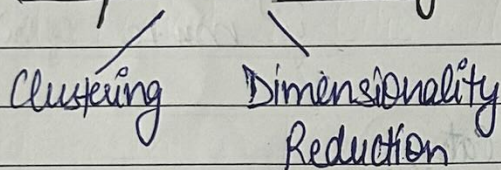 Clustering Dimensionality
Reduction